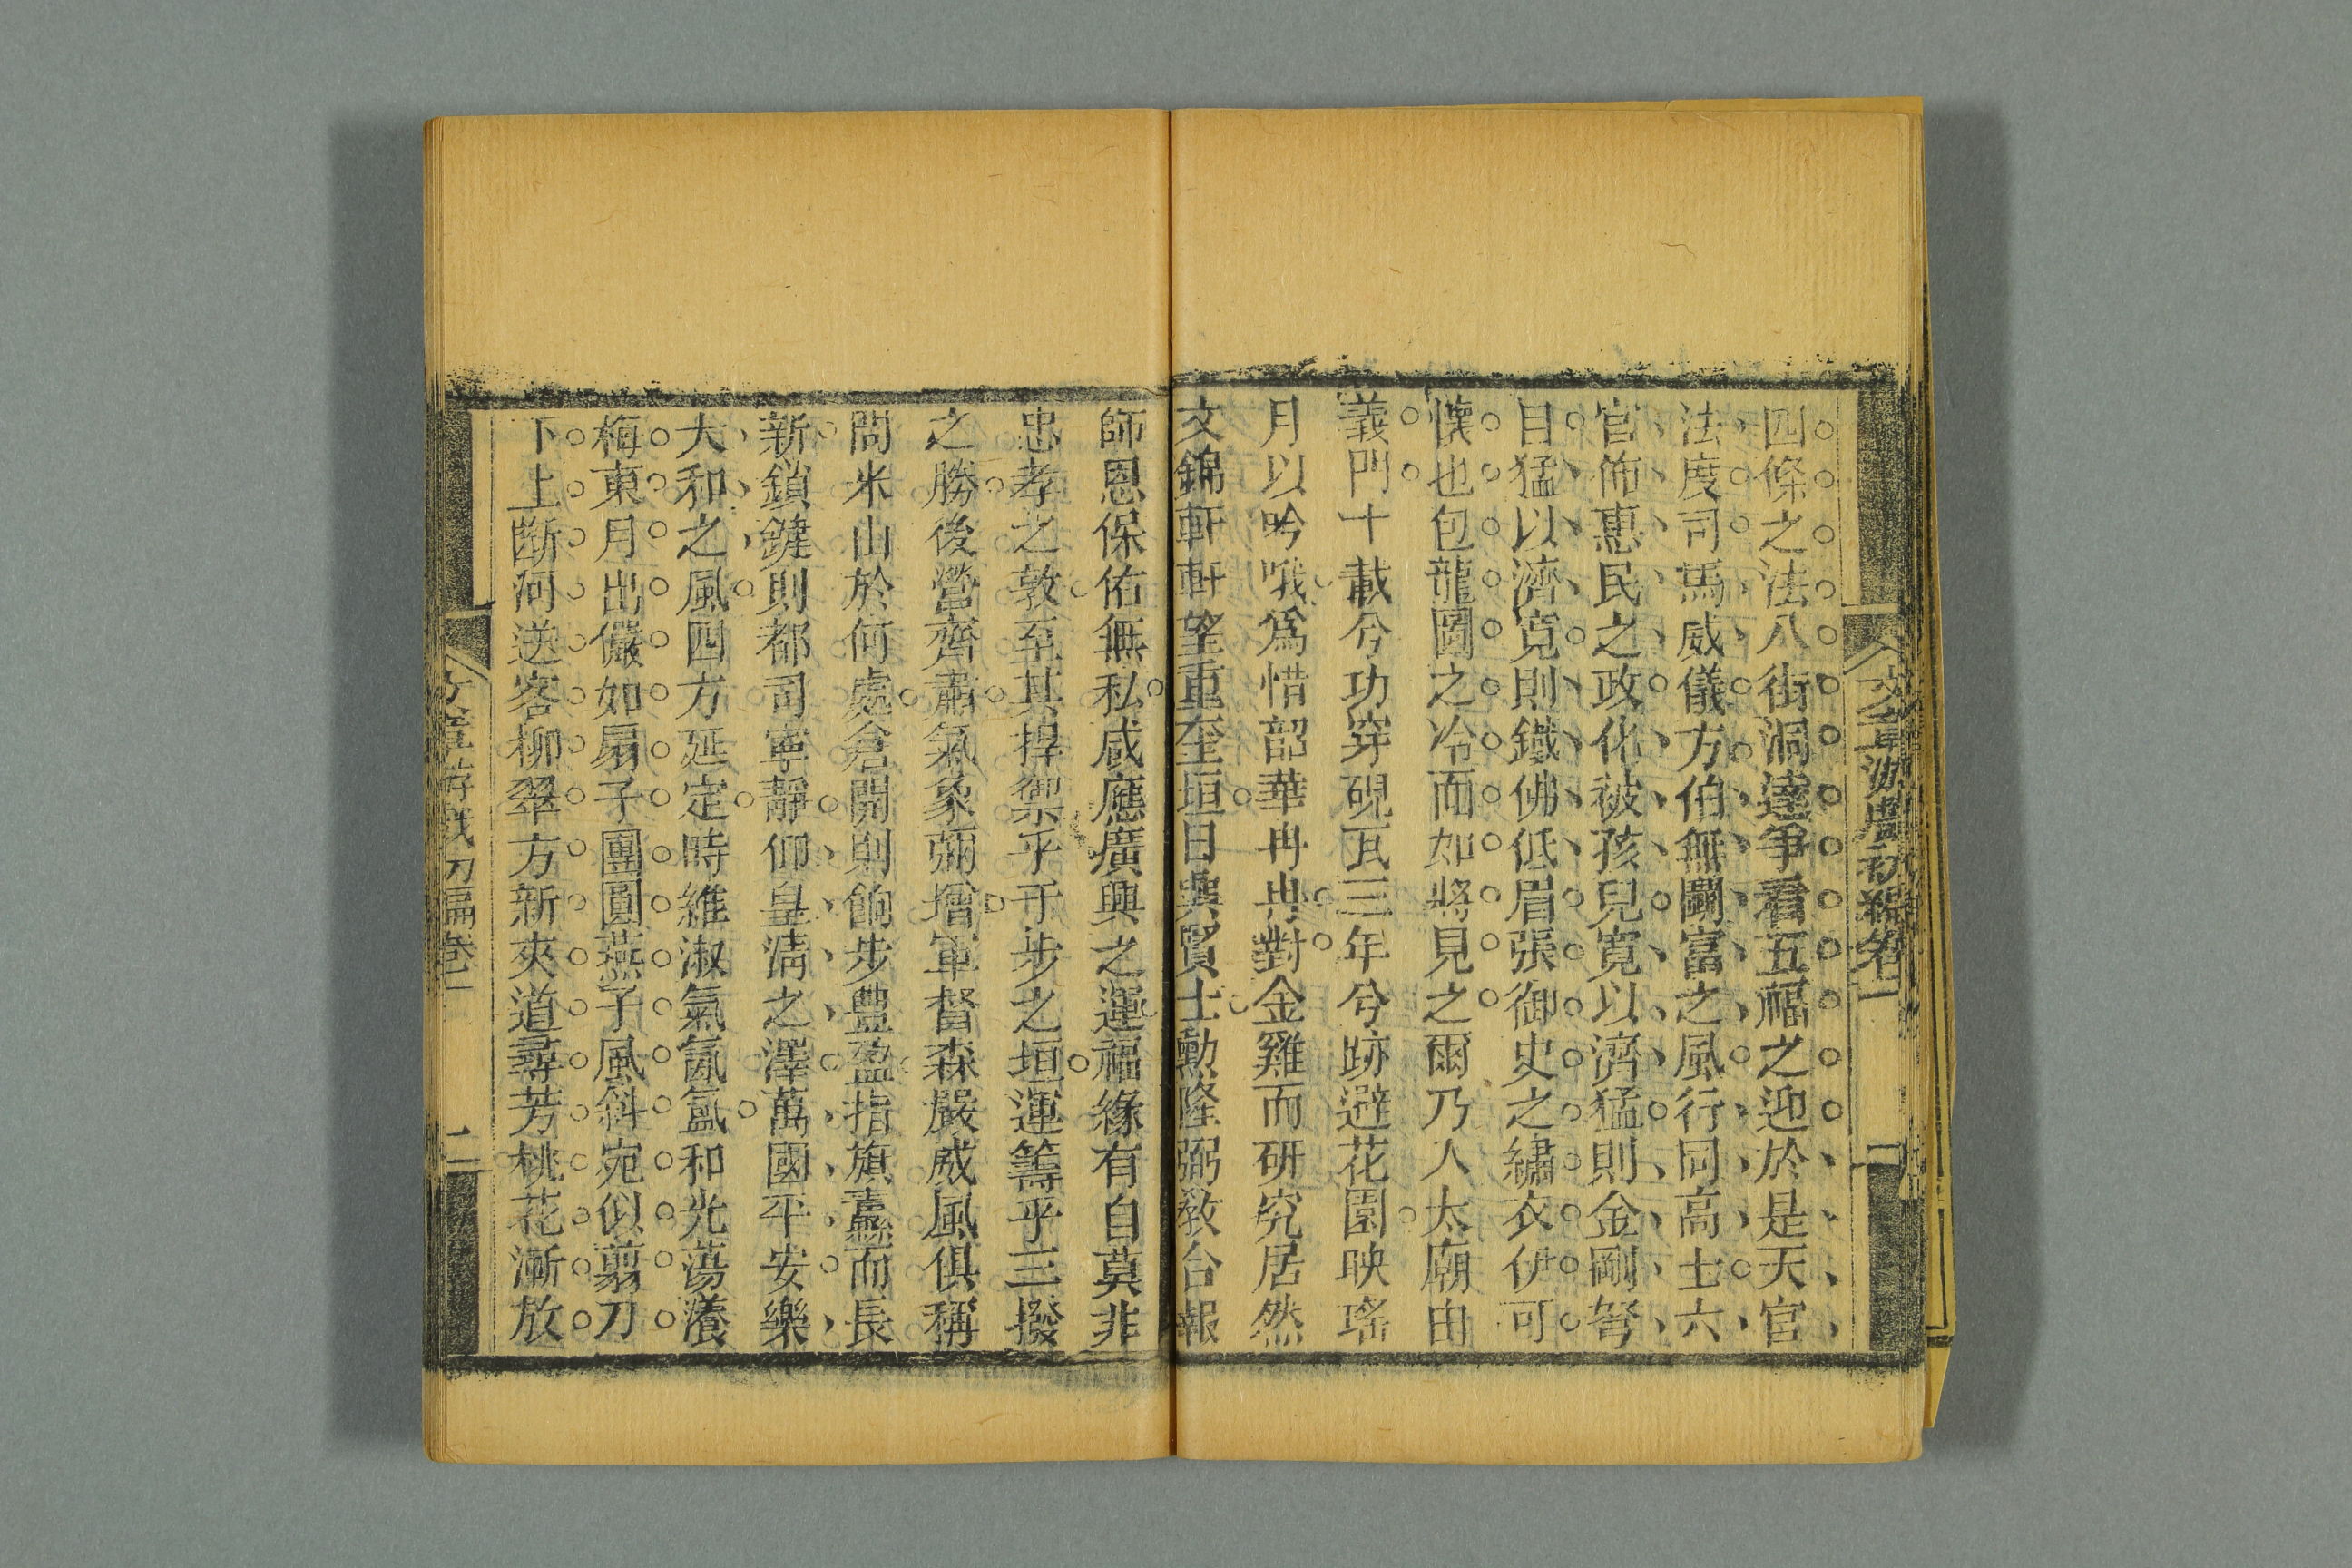 文章游戲初編卷一
一
四條之法八街洞達爭看五福之迎於是天官
法度司馬威儀方伯無鬬富之風行同高士六
官佈惠民之政化被孩兒寬以濟猛則金剛弩
目猛以濟寬則鐵佛低眉張御史之繡衣伊可
懷也包龍圖之冷而如將見之爾乃人太廟由
義門十載兮功穿硯瓦三年兮跡避花園映瑤
月以吟哦爲惜韶華冉冉對金雞而研究居然
文錦軒軒望重奎垣日襄贊士勳隆弼敎台報
師恩保佑無私咸應廣興之運福緣有自莫非
忠孝之敦至其捍禦乎于步之垣運籌乎三撥
之勝後營齊肅氣象彌增軍督森嚴威風俱稱
問米山於何處倉開則餉步豐盈指旗纛而長
新鎖鍵則都司寧靜仰皇淸之澤萬國平安樂
大和之風四方延定時維淑氣氤氳和光蕩瀁
梅東月出儼如扇子團圓燕子風斜宛似翦刀
下上斷河送客柳翠方新夾道尋芳桃花漸放
文章游戲初編卷一
二